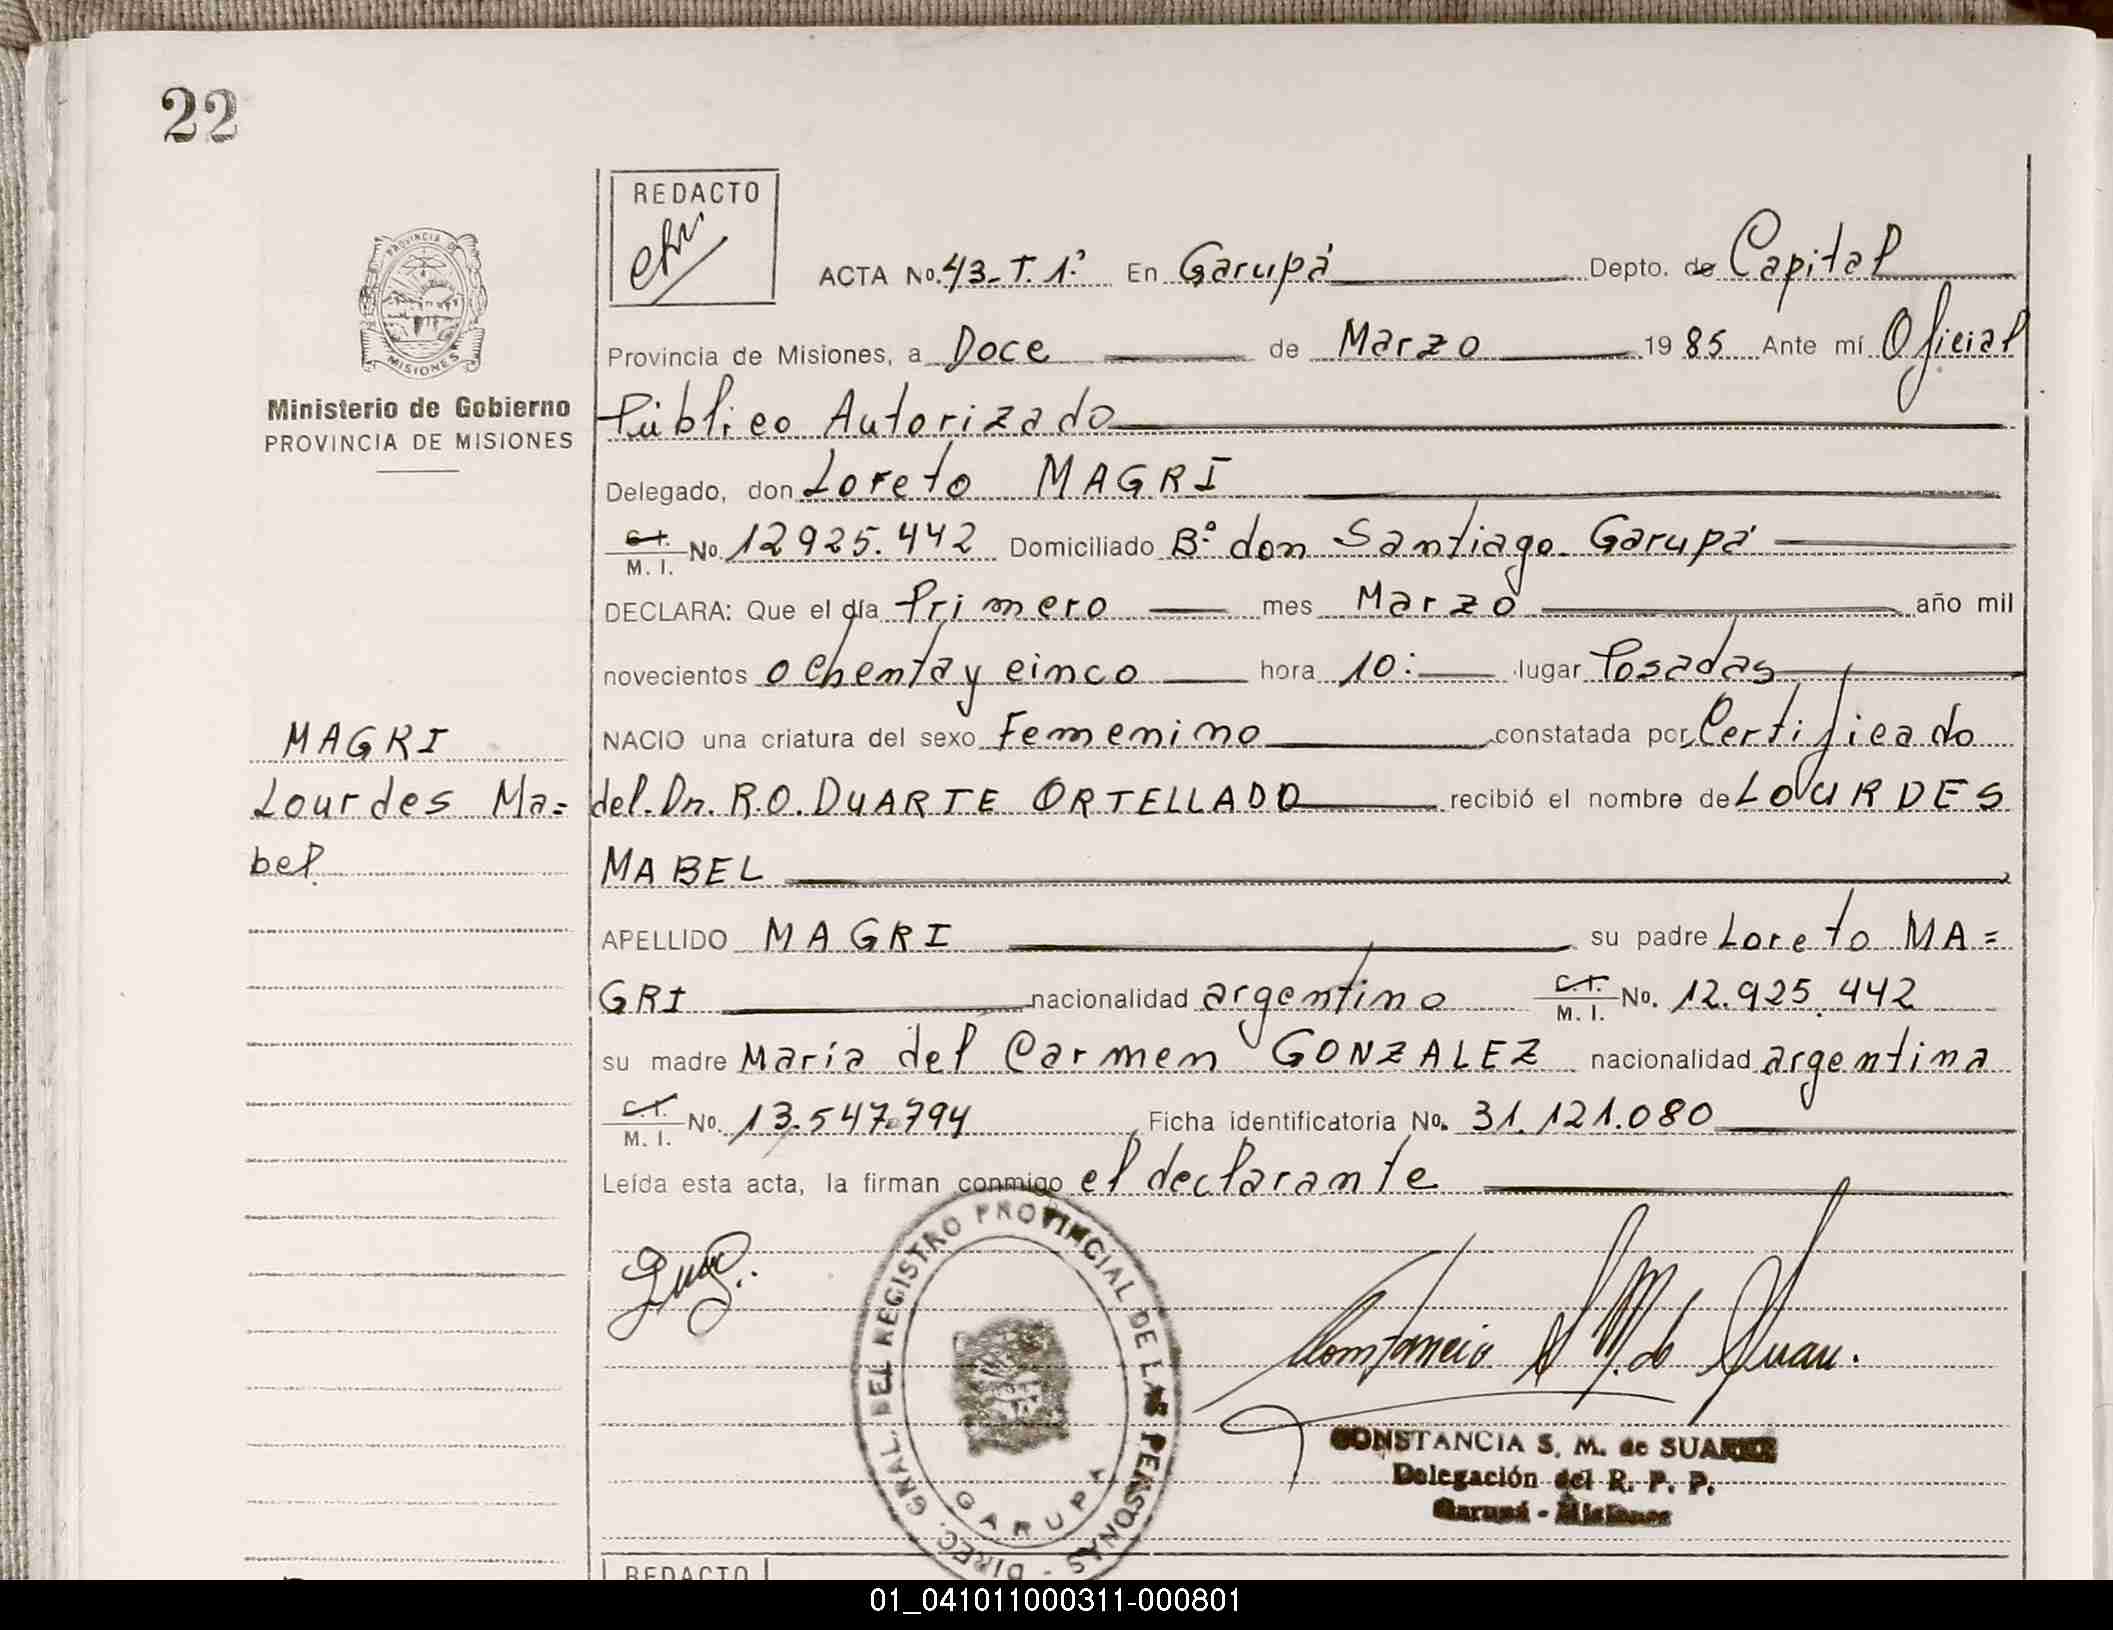 22
REDACTO
PROVINCIA DE
MISIONES
Ministerio de Gobierno
PROVINCIA DE MISIONES
ACTA No. 43-T.1º En Garupá Depto. de Capital
Provincia de Misiones, a Doce de Marzo 1985 Ante mí Oficial
Público Autorizado
Delegado, don Loreto MAGRI
C.I. M. I. No. 12925.442 Domiciliado Bº don Santiago Garupá
DECLARA: Que el día Primero mes Marzo año mil
novecientos ochenta y cinco hora 10: lugar Posadas
NACIO una criatura del sexo Femenino constatada por Certificado
del Dr. R.O. DUARTE ORTELLADO recibió el nombre de LOURDES
MABEL
MAGRI
Lourdes Ma=
bel
APELLIDO MAGRI su padre Loreto MA=
GRI nacionalidad argentino C.I. M. I. No. 12.925.442
su madre María del Carmen GONZALEZ nacionalidad argentina
C.I. M. I. No. 13.547.794 Ficha identificatoria No. 31.121.080
Leída esta acta, la firman conmigo el declarante
DIREC. GRAL. DEL REGISTRO PROVINCIAL DE LAS PERSONAS -
GARUPA
Constancia S. M. de Suarez
CONSTANCIA S. M. de SUAREZ
Delegación del R. P. P.
Garupá - Misiones
REDACTO
01_041011000311-000801